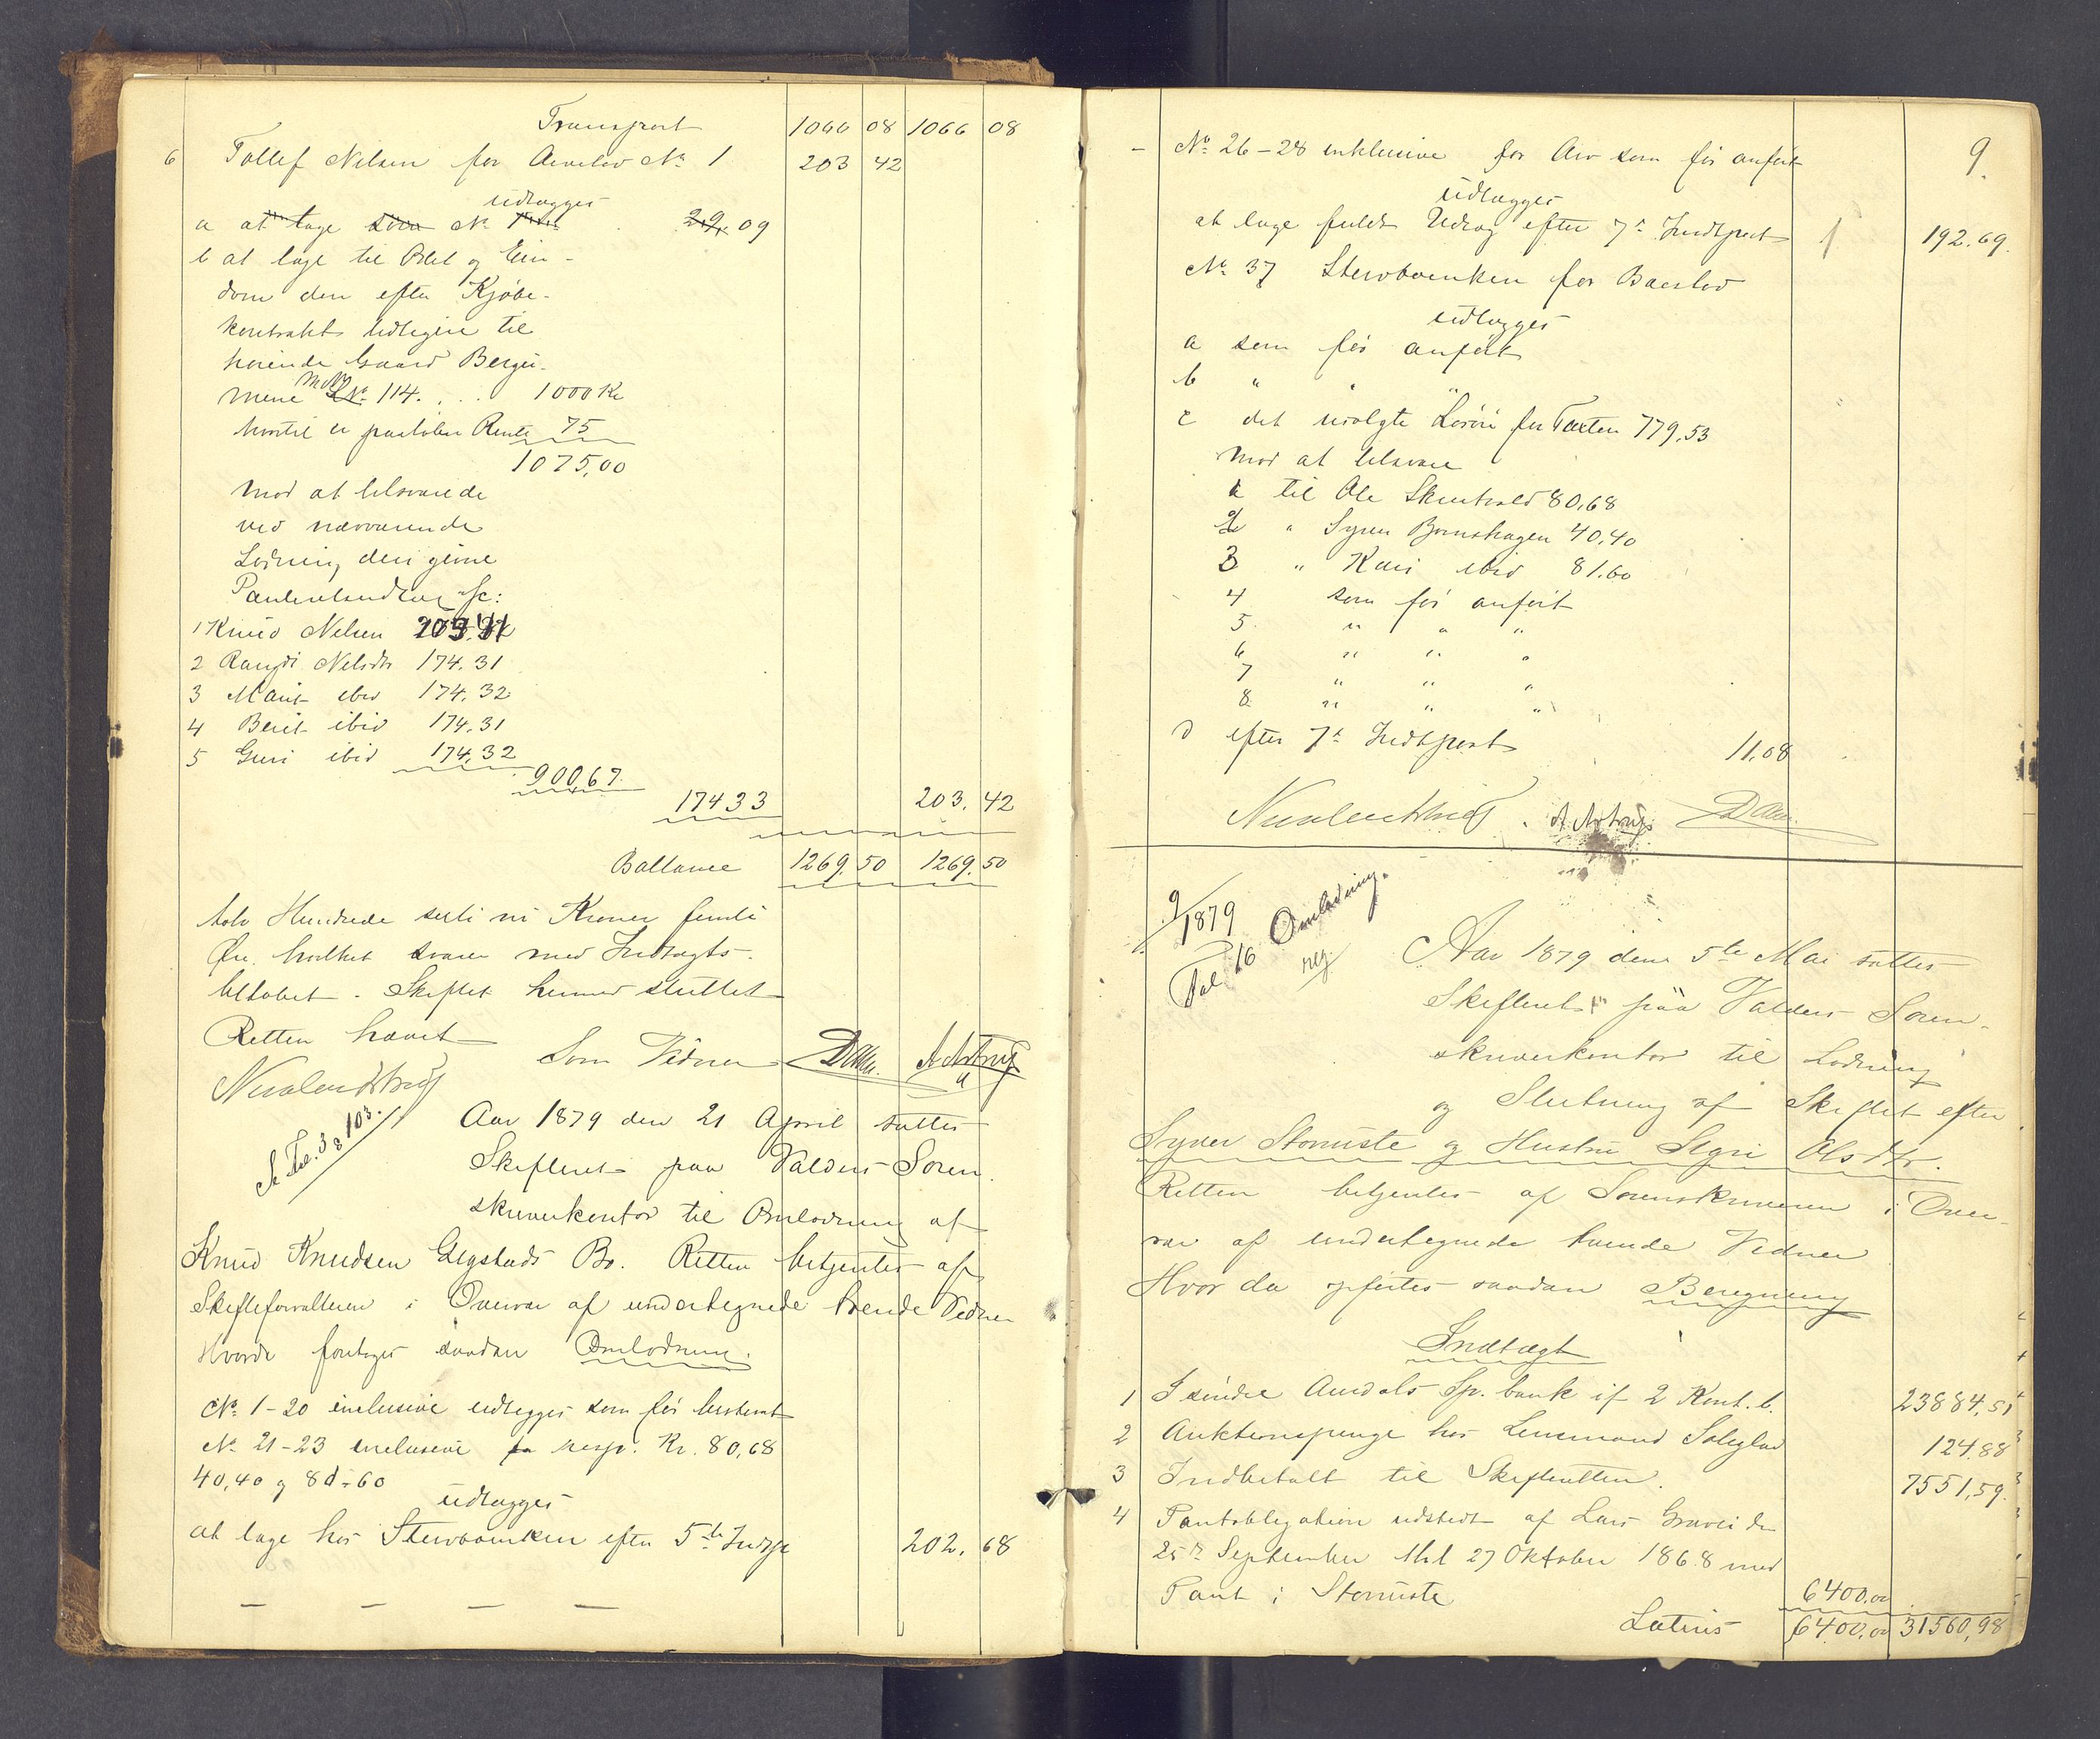 Transport 1066 08 1066 08
6 Tollef Nilsen for Arvelod No 1 203 42
udlægges
a at tage No 29,09
b at tage til Blet og Eien-
dom den efter Kjøbe-
kontrakts udlagine til
hørende Gaard Berge-
mene MNo 114 . . . 1000 Kr
hvortil er paaløben Rente 75
1075,00
mod at tilsvare de
ved nærværende
Lodning den givne
Panteudlæg &c:
1 Knud Nilsen
2 Rangdi Nilsdtr 174,31
3 Marit ibid 174,32
4 Berit ibid 174,31
5 Guri ibid 174,32
900,67
174 33 203, 42
Ballance 1269, 50 1269, 50
tolv Hundrede sexti ni Kroner femti
Øre. hvilket svarer med Indtægts-
beløbet - Skiftet hermed sluttet
Retten hævet
Som Vidner A Astrup
A Fol. 38 103.
Aar 1879 den 21 April sattes
Skifteret paa Valders Soren-
skriverkontor til Omlodning af
Knud Knudsen Gigstads Bo. Retten betjentes af
Skifteforvalteren i Overvær af undertegnede tvende Vidner
Hvorda foretoges saadan Omlodning.
No 1-20 inclusive udlægges som før bestemt
No 21-23 inclusive resp. Kr. 80,68
40,40 og 81-60
udlægges
at tage hos Stervboenken efter 5te Indtpt 202, 68
— — — —
9.
No 26-28 inklusive for Arv som før anført
udlægges
at tage fuldt Udlæg efter 7de Indtpost 192,69.
No 37 Stervboenken for Boeslod
udlægges
a som før anført
b " " "
c det usolgte Løsøre for Taxten 779,53
mod at tilsvare
1 til Ole Skutvold 80,68
2 " Syver 40,40
3 " Kari ibid 81,60
4 som før anført
5 " " "
6 " " "
7 " " "
8 " " "
d efter 7de Indtpost 11,08
A Astrup
9/1879
Fol 16 Omlodning.
reg
Aar 1879 den 5te Mai sattes
Skifteret paa Valders Soren-
skriverkontor til Lodning
og Slutning af Skiftet efter
Syver Stomiste og Hustru Sigri Olsdtr.
Retten betjentes af Sorenskriveren i Over-
vær af undertegnede tvende Vidner
Hvor da opførtes saadan Beregning
Indtægt
1 I søndre Aurdals Sp. bank if 2 Kont. b. 23884,51
2 Auktionspenge hos Lensmand 124,88
3 Indbetalt til Skifteretten. 7551,59.
4 Pantobligation udstedt af Lars den
25de September thl 27 Oktober 1868 med
Pant i Stomiste 6400,00
Lateris 6400,00 31560,98